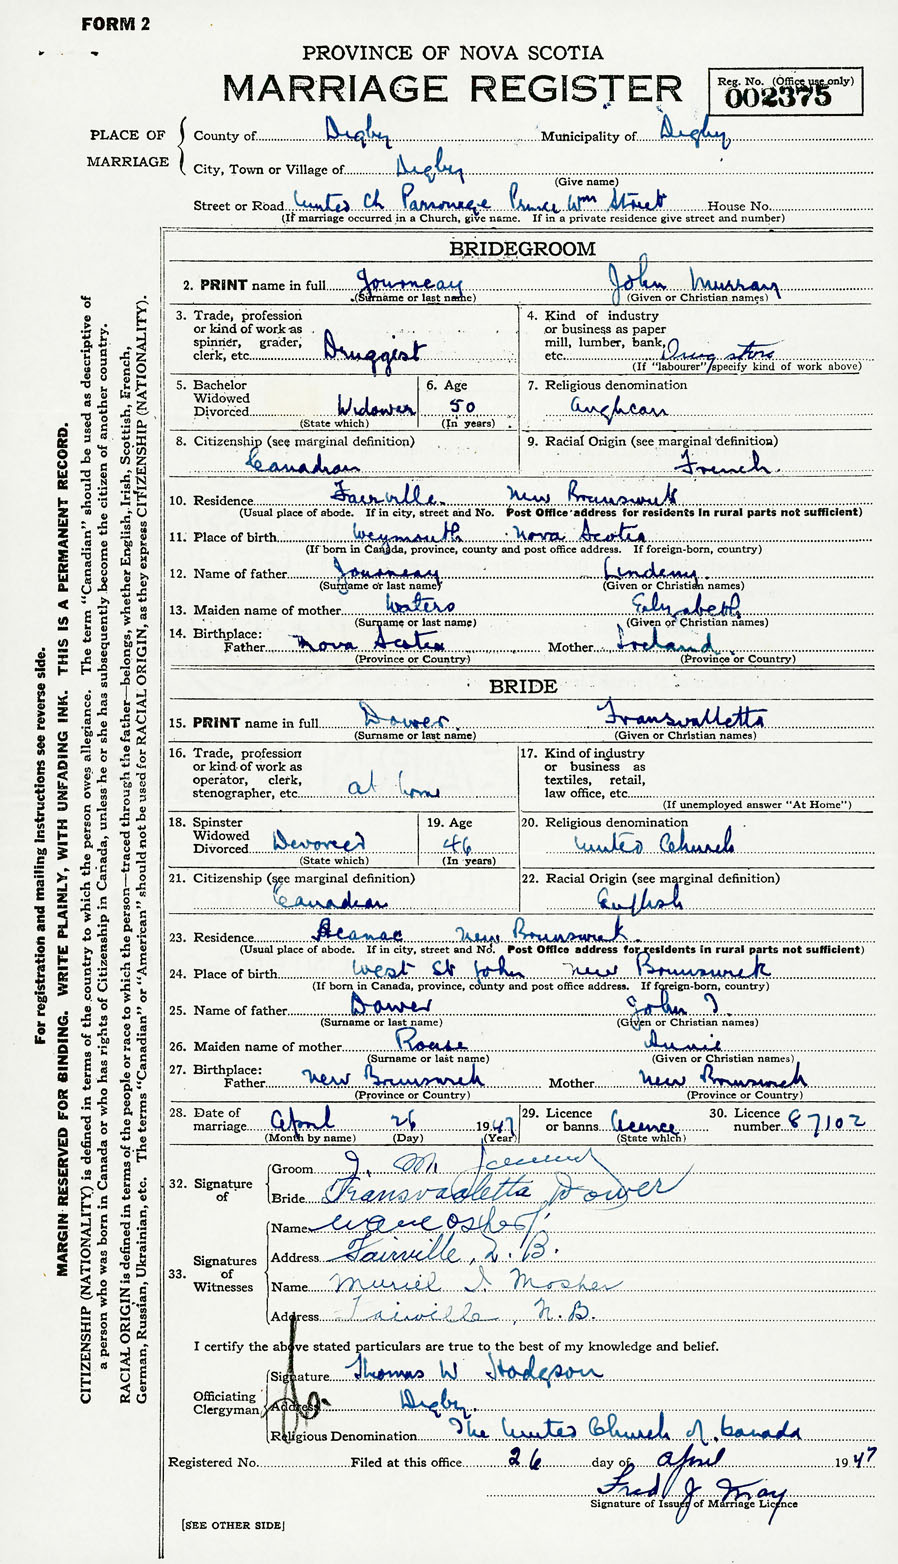 FORM 2
PROVINCE OF NOVA SCOTIA
MARRIAGE REGISTER
Reg. No. (Office use only)
002375
PLACE OF MARRIAGE
County of Digby Municipality of Digby
City, Town or Village of Digby
(Give name)
Street or Road United Ch Parsonage Prince Wm Street House No.
(If marriage occurred in a Church, give name. If in a private residence give street and number)
BRIDEGROOM
2. PRINT name in full Journeay John Murray
(Surname or last name) (Given or Christian names)
3. Trade, profession 4. Kind of industry
or kind of work as or business as paper
spinner, grader, mill, lumber, bank,
clerk, etc. Druggist etc. Drug store
(If "labourer" specify kind of work above)
5. Bachelor 6. Age 7. Religious denomination
Widowed
Divorced Widower 50 Anglican
(State which) (In years)
8. Citizenship (see marginal definition) 9. Racial Origin (see marginal definition)
Canadian French
10. Residence Fairville New Brunswick
(Usual place of abode. If in city, street and No. Post Office address for residents in rural parts not sufficient)
11. Place of birth Weymouth Nova Scotia
(If born in Canada, province, county and post office address. If foreign-born, country)
12. Name of father Journeay
(Surname or last name) (Given or Christian names)
13. Maiden name of mother Waters Elizabeth
(Surname or last name) (Given or Christian names)
14. Birthplace:
Father Nova Scotia Mother Ireland
(Province or Country) (Province or Country)
BRIDE
15. PRINT name in full Dower Transvalletta
(Surname or last name) (Given or Christian names)
16. Trade, profession 17. Kind of industry
or kind of work as or business as
operator, clerk, textiles, retail,
stenographer, etc. at home law office, etc.
(If unemployed answer "At Home")
18. Spinster 19. Age 20. Religious denomination
Widowed
Divorced Devorced 46 United Church
(State which) (In years)
21. Citizenship (see marginal definition) 22. Racial Origin (see marginal definition)
Canadian English
23. Residence Acamac New Brunswick
(Usual place of abode. If in city, street and No. Post Office address for residents in rural parts not sufficient)
24. Place of birth West St John New Brunswick
(If born in Canada, province, county and post office address. If foreign-born, country)
25. Name of father Dower John I.
(Surname or last name) (Given or Christian names)
26. Maiden name of mother Rouse Annie
(Surname or last name) (Given or Christian names)
27. Birthplace:
Father New Brunswick Mother New Brunswick
(Province or Country) (Province or Country)
28. Date of 29. Licence 30. Licence
marriage April 26 1947 or banns licence number 87102
(Month by name) (Day) (Year) (State which)
32. Signature of
Groom J. M. Journeay
Bride Transvaaletta Dower
33. Signatures of Witnesses
Name
Address Fairville, N.B.
Name Muriel I. Mosher
Address Fairville, N.B.
I certify the above stated particulars are true to the best of my knowledge and belief.
Officiating Clergyman
Signature Thomas W Hodgson
Address Digby.
Religious Denomination The United Church of Canada
Registered No. Filed at this office 26 day of April 1947
Fred J May
Signature of Issuer of Marriage Licence
[SEE OTHER SIDE]
For registration and mailing instructions see reverse side.
MARGIN RESERVED FOR BINDING. WRITE PLAINLY, WITH UNFADING INK. THIS IS A PERMANENT RECORD.
CITIZENSHIP (NATIONALITY) is defined in terms of the country to which the person owes allegiance. The term "Canadian" should be used as descriptive of
a person who was born in Canada or who has rights of Citizenship in Canada, unless he or she has subsequently become the citizen of another country.
RACIAL ORIGIN is defined in terms of the people or race to which the person—traced through the father—belongs, whether English, Irish, Scottish, French,
German, Russian, Ukrainian, etc. The terms "Canadian" or "American" should not be used for RACIAL ORIGIN, as they express CITIZENSHIP (NATIONALITY).